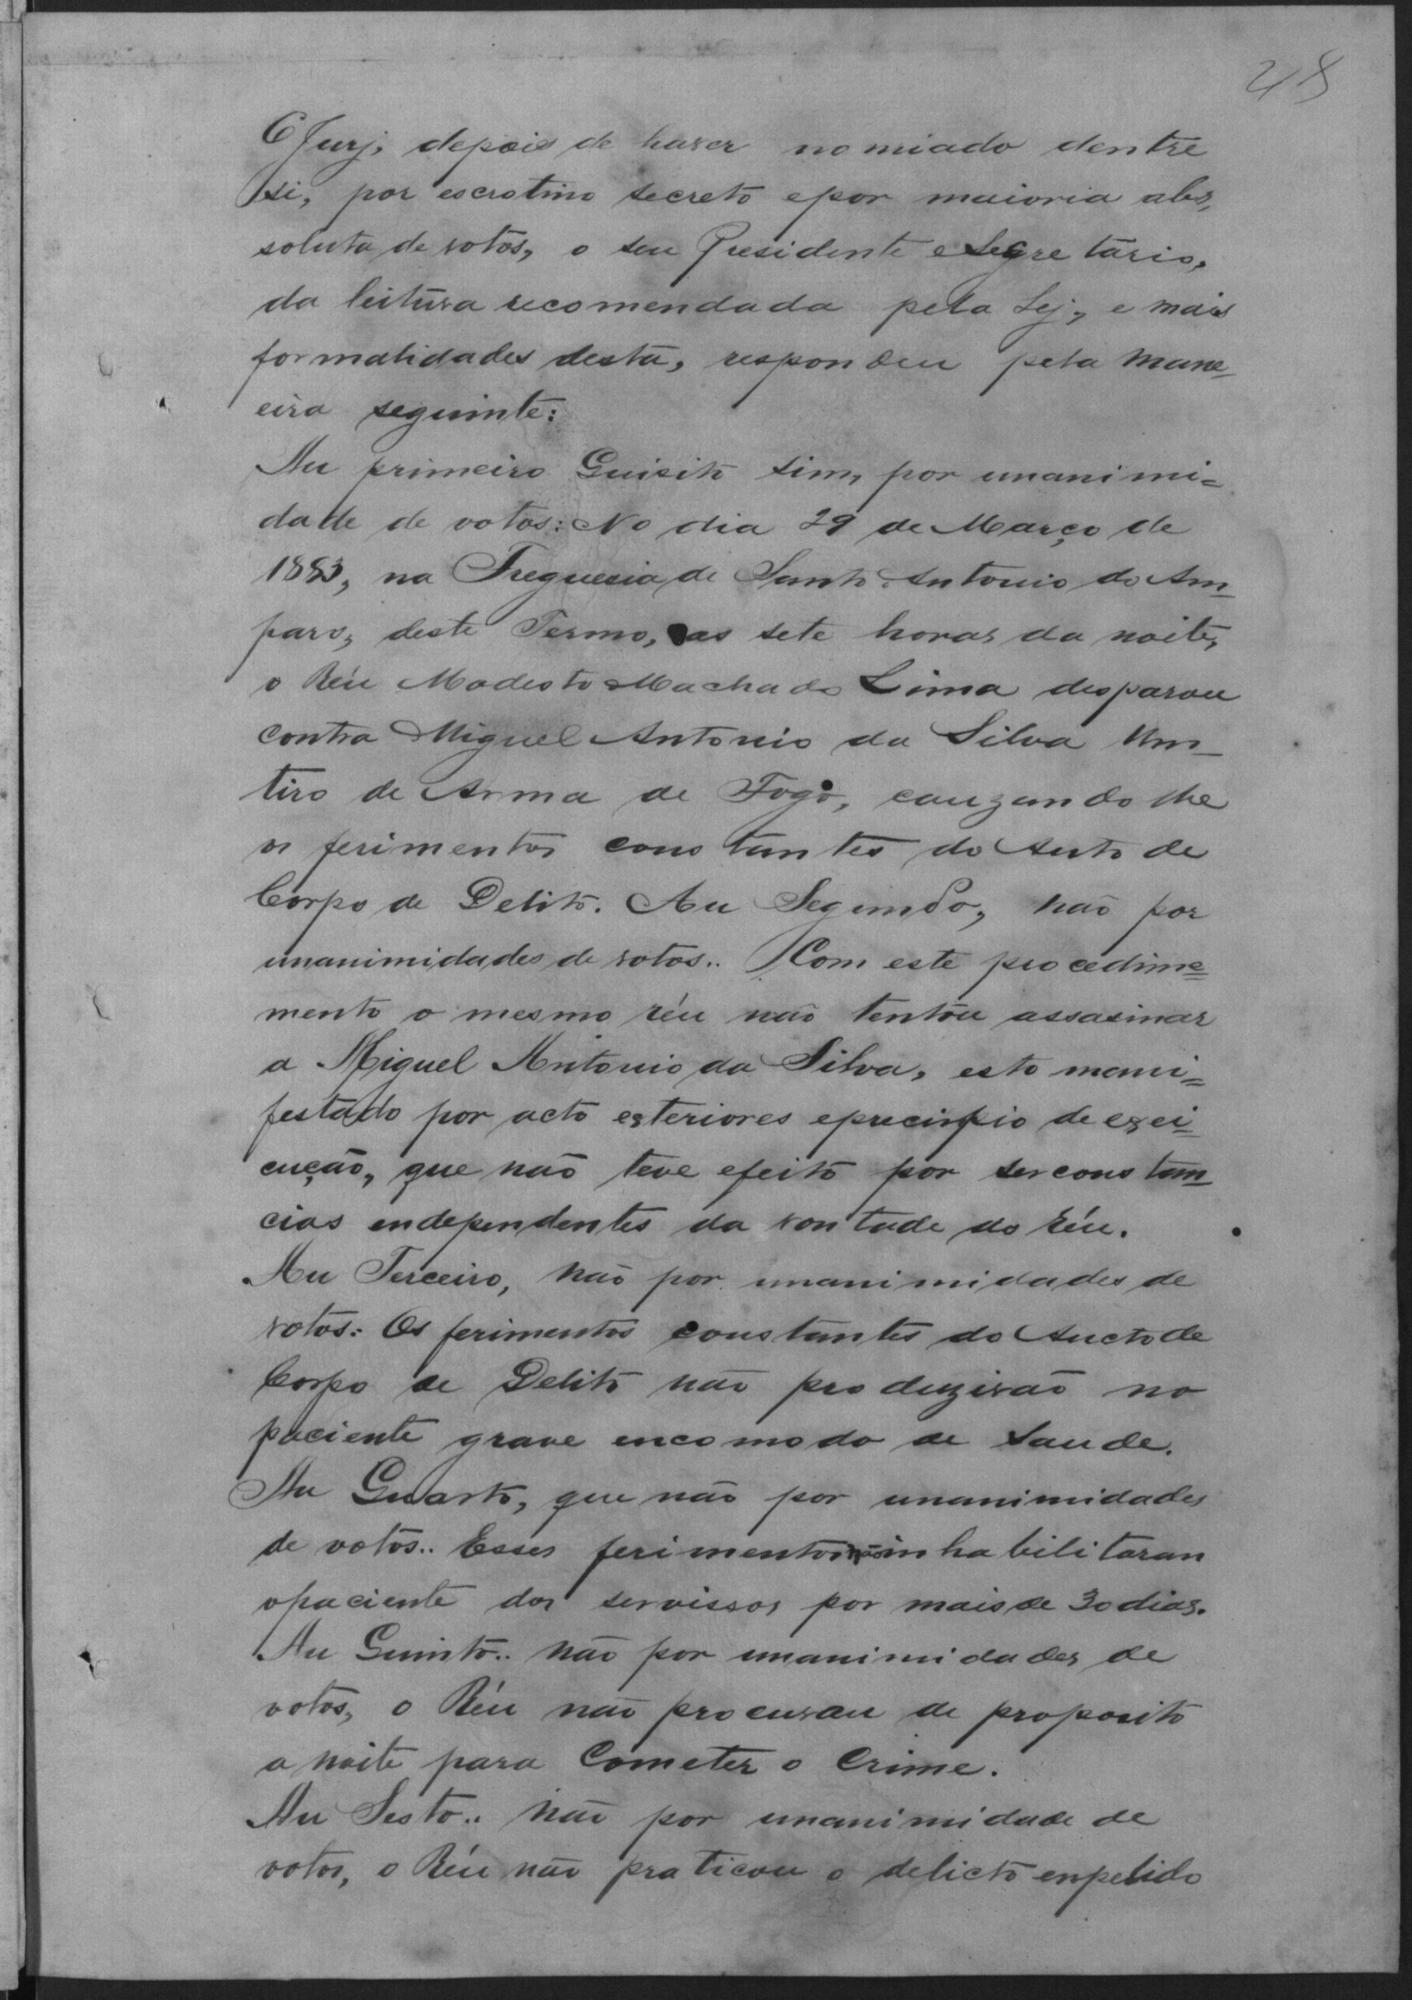 48
O Jury, depois de haver nomiado dentre
si, por escrotino secreto e por maioria abs,
soluta de votos, o seu Presidente e Segretario,
da leitura recomendada pela Ley, e mais
formalidades desta, respondeu pela mane=
eira seguinte:
Au primeiro Quisito sim, por unanimi=
dade de votos: No dia 29 de Março de
1883, na Freguesia de Santo Antonio do Am=
paro, deste Termo, as sete horas da noite,
o Réu Modesto Machado Lima desparou
contra Miguel Antonio da Silva um
tiro de Arma de Fogo, cauzando lhe
os ferimentos constantes do Auto de
Corpo de Delito. Au Segundo, não por
unanimidades de votos.. Com este procedime=
mento o mesmo réu não tentou assasinar
a Miguel Antonio da Silva, esto mani=
festado por acto esteriores e precinpio de exei=
cução, que não teve efeito por serconstan=
cias endependentes da vontade do Réu.
Au Terceiro, não por unanimidades de
votos: Os ferimentos constantes do Aucto de
Corpo de Delito não produzirão no
paciente grave encomodo de Saude.
Au Quarto, que não por unanimidades
de votos.. Esses ferimentos não inhabilitaran
o paciente dos servissos por mais de 30 dias.
Au Quinto.. não por unanimidades de
votos, o Réu não procurau de proposito
a noite para Cometer o Crime.
Au Sesto.. não por unanimidade de
votos, o Réu não praticou o delicto enpelido